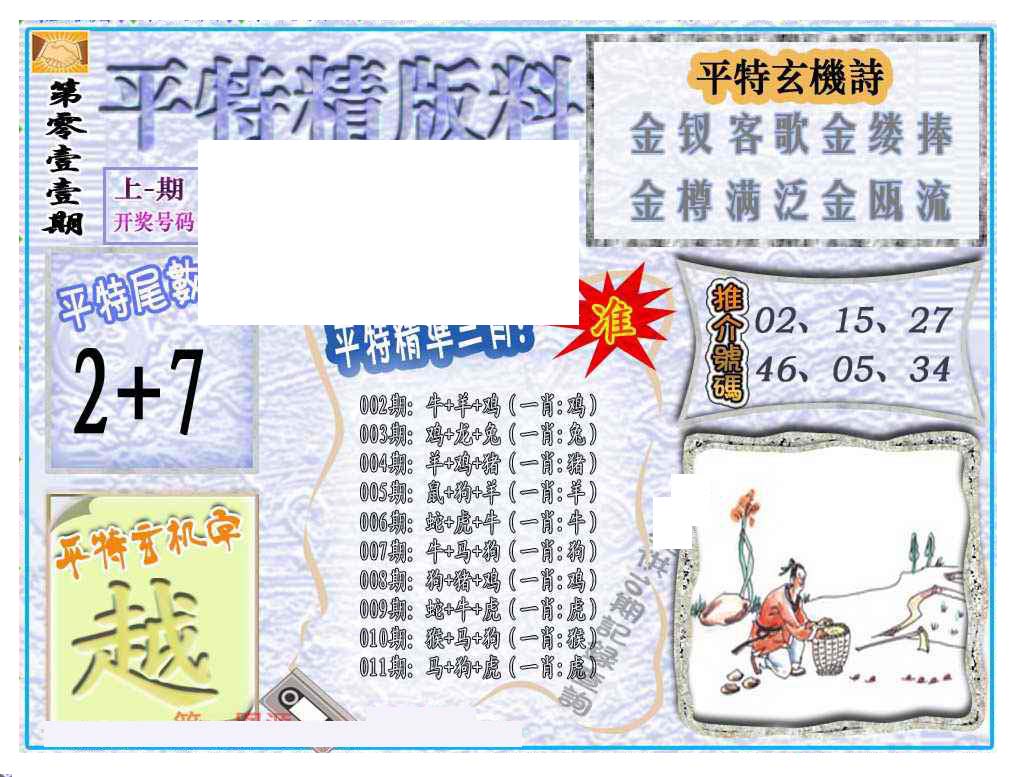 第零壹壹期
平特精版料
上-期
开奖号码
平特玄機詩
金钗客歌金缕捧
金樽满泛金瓯流
平特尾數
2+7
平特精准三肖!
准
推介號碼
02、15、27
46、05、34
002期: 牛+羊+鸡(一肖:鸡)
003期: 鸡+龙+兔(一肖:兔)
004期: 羊+鸡+猪(一肖:猪)
005期: 鼠+狗+羊(一肖:羊)
006期: 蛇+虎+牛(一肖:牛)
007期: 牛+马+狗(一肖:狗)
008期: 狗+猪+鸡(一肖:鸡)
009期: 蛇+牛+虎(一肖:虎)
010期: 猴+马+狗(一肖:猴)
011期: 马+狗+虎(一肖:虎)
平特玄机字
越
供多期記錄查詢